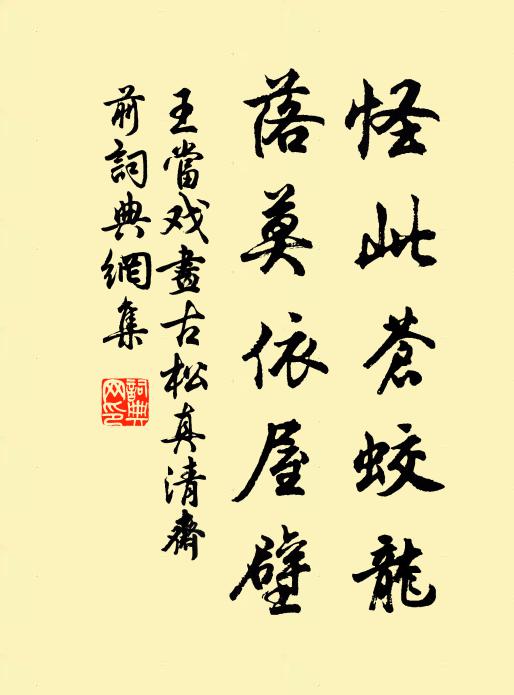 怪此蒼蛟龍
落莫依屋壁
王當戏畫古松真清齋
前詞典網集
詞典网印